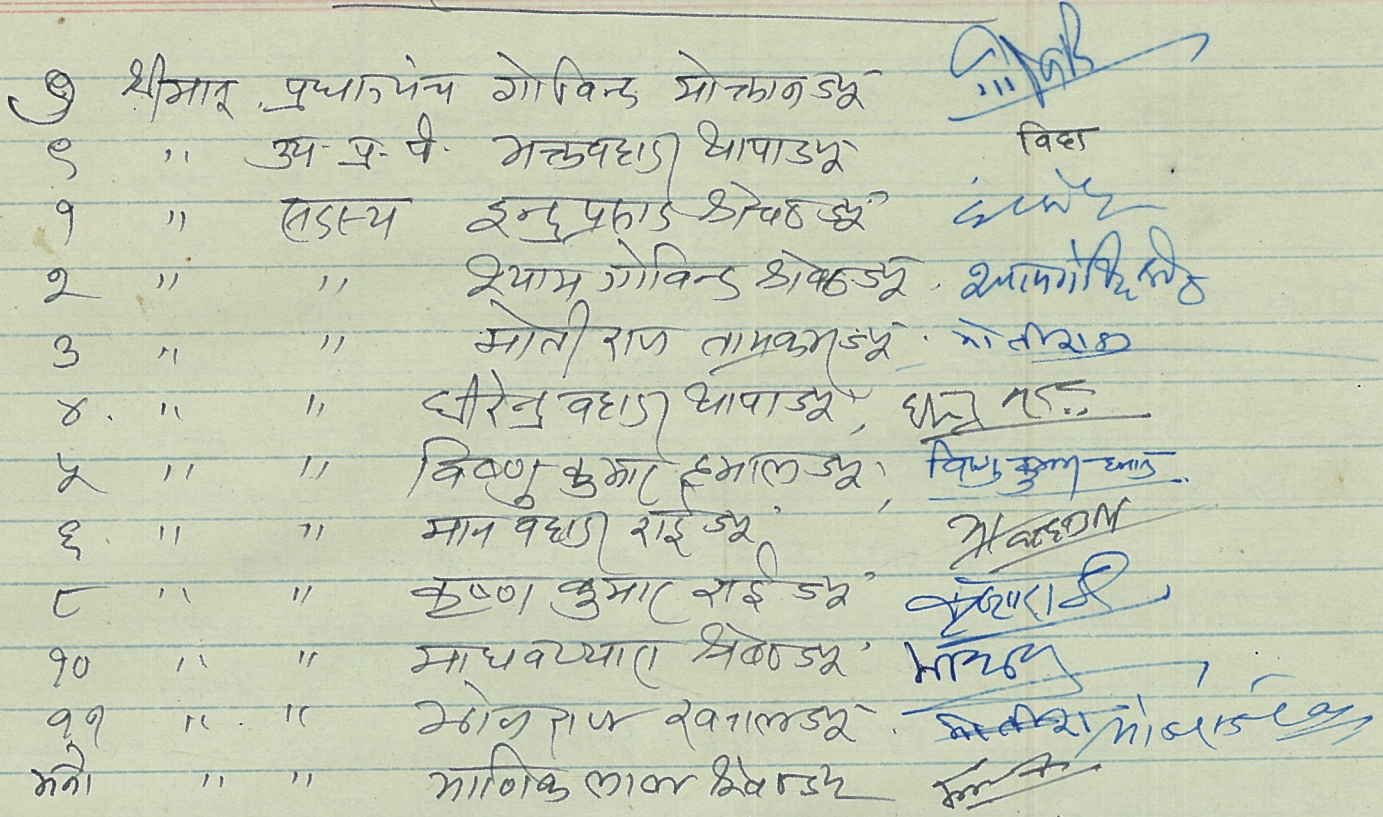 ७ श्रीमान् प्रधानपंच गोविन्द मोक्तानज्यू
९ " उप. प्र. पं. भक्तवहादुर थापाज्यू विदा
१ " सदस्य इन्द्रप्रसाद श्रेष्ठज्यू
२ " " श्याम गोविन्द श्रेष्ठज्यू. श्यामगोविन्द श्रेष्ठ
३ " " मोती राज ताम्रकारज्यू. मोतीराज
४. " " धीरेन्द्र वहादुर थापाज्यू,
५ " " विष्णु कुमार हमालज्यू, विष्णु कुमार हमाल
६. " " मान वहादुर राईज्यू
८ " " कृष्ण कुमार राई ज्यू
१० " " माधवप्यारा श्रेष्ठज्यू
११ " " भोजराज खनालज्यू.
मनो " " माणिक लाल श्रेष्ठज्यू